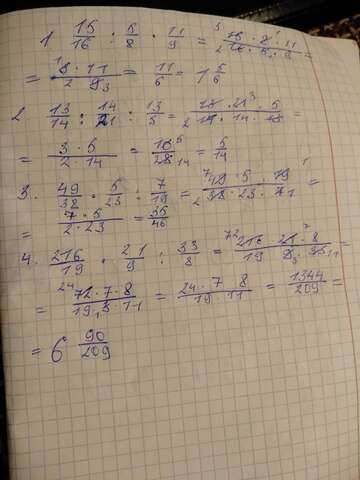 1 15/16 : 5/8 · 11/9 = 15 · 8 · 11 / 16 · 5 · 9 =
= 3 · 11 / 2 · 9 3 = 11/6 = 1 5/6
2 13/14 : 14/21 : 13/5 = 13 · 21 · 5 / 14 · 14 · 13 =
= 3 · 5 / 2 · 14 = 10/28 = 5/14
3. 49/38 · 5/23 : 7/19 = 49 · 5 · 19 / 38 · 23 · 7 =
= 7 · 5 / 2 · 23 = 35/46
4. 216/19 · 21/9 : 33/8 = 216 · 21 · 8 / 19 · 9 · 33 =
= 72 · 7 · 8 / 19 · 3 · 11 = 24 · 7 · 8 / 19 · 11 = 1344/209 =
= 6 90/209